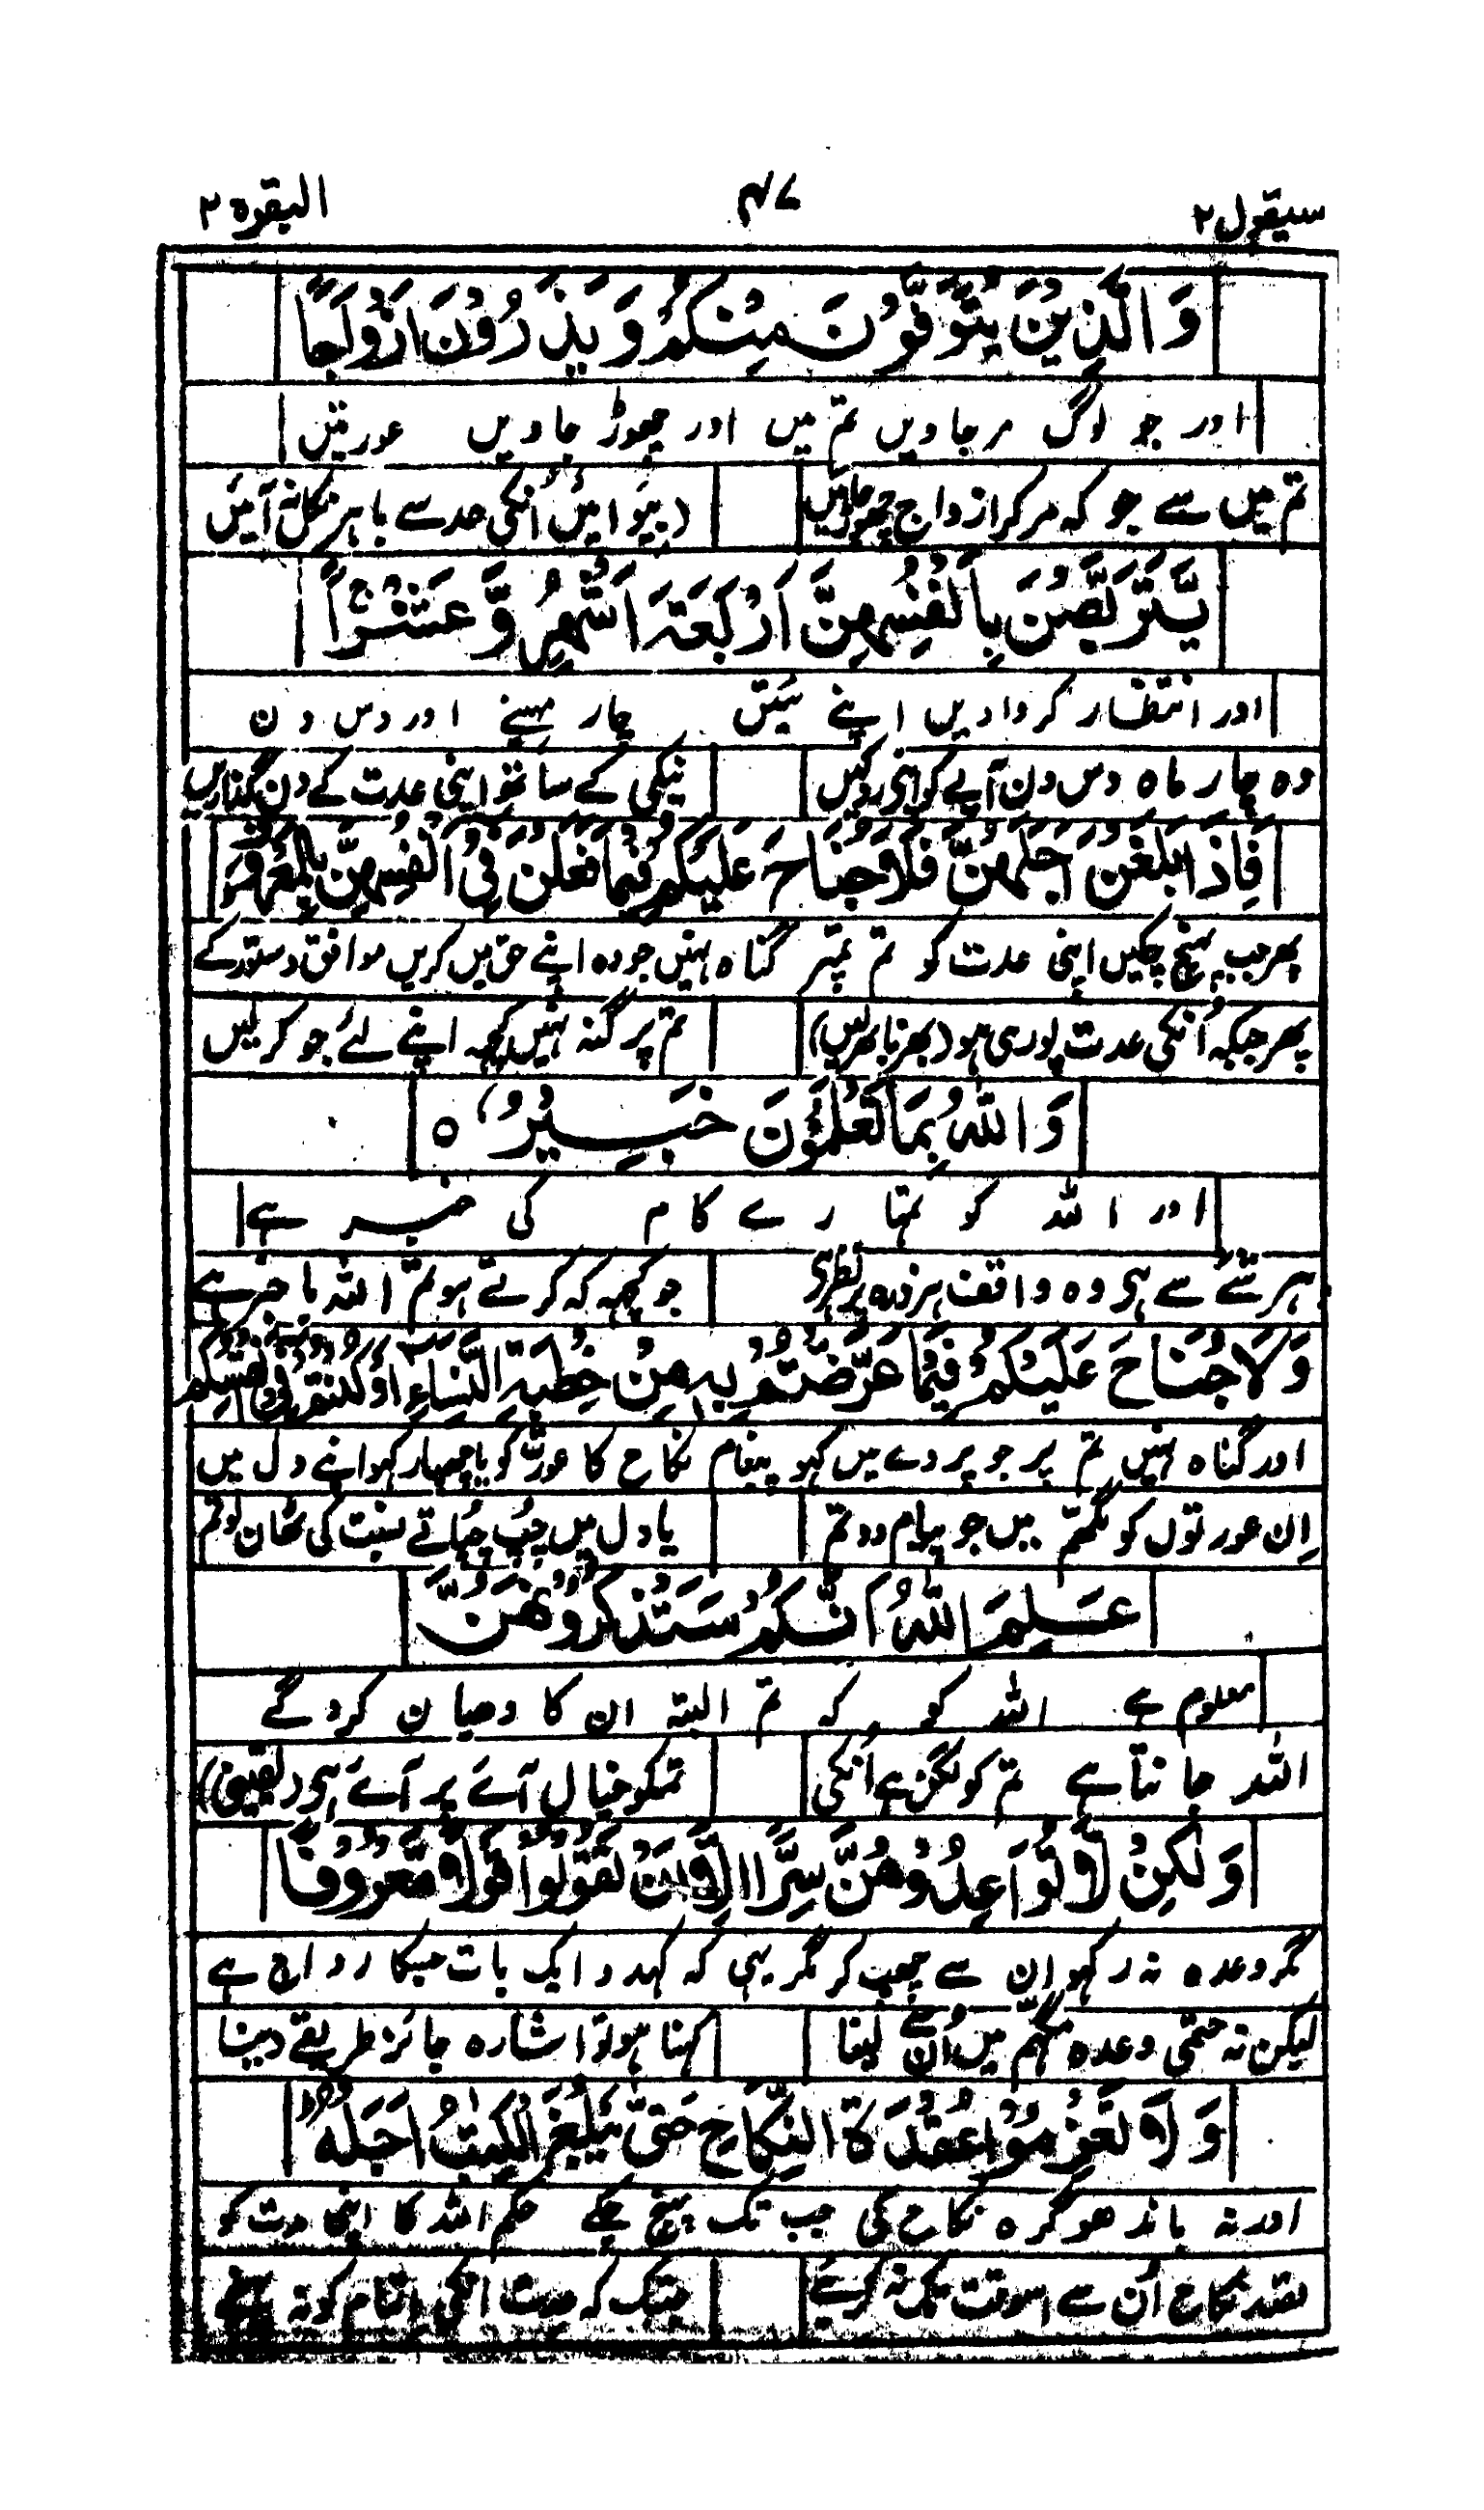 سیقول ۲ ۴۷ البقرہ ۲
وَالَّذِيْنَ يُتَوَفَّوْنَ مِنْكُمْ وَيَذَرُوْنَ اَزْوَاجًا
اور جو لوگ مر جاویں تم میں اور چھوڑ جاویں عورتیں
تم میں سے جو کہ مر کر ازواج چھوڑ جائیں (بیوائیں) اُنکی حد سے باہر نکل نہ آئیں
يَّتَرَبَّصْنَ بِاَنْفُسِهِنَّ اَرْبَعَةَ اَشْهُرٍ وَّعَشْرًا
اور انتظار کروادیں اپنے تئیں چار مہینے اور دس دن
وہ چار ماہ دس دن آپے کو اپنی روکیں نیکی کے ساتھ اپنی عدت کے دن گذاریں
فَاِذَا بَلَغْنَ اَجَلَهُنَّ فَلَا جُنَاحَ عَلَيْكُمْ فِيْمَا فَعَلْنَ فِيْ اَنْفُسِهِنَّ بِالْمَعْرُوْفِ
پھر جب پہنچ چکیں اپنی عدت کو تم تمپر گناہ نہیں جو وہ اپنے حق میں کریں موافق دستور کے
پھر جبکہ اُنکی عدت پوری ہو (بھرنا بھرلیں) تم پر گنہ نہیں کچھ اپنے لئے جو کرلیں
وَاللّٰهُ بِمَا تَعْمَلُوْنَ خَبِيْرٌ ہ
اور اللہ کو تمہارے کام کی خبر ہے
ہر شے سے ہی وہ واقف ہر ذرہ پر نظر ہی جو کچھ کہ کرتے ہو تم اللہ باخبر ہے
وَلَا جُنَاحَ عَلَيْكُمْ فِيْمَا عَرَّضْتُمْ بِهٖ مِنْ خِطْبَةِ النِّسَآءِ اَوْ اَكْنَنْتُمْ فِيْ اَنْفُسِكُمْ
اور گناہ نہیں تم پر جو پردے میں کہو پیغام نکاح کا عورت کو یا چھپا رکھو اپنے دل میں
اِن عورتوں کو گھر میں جو پیام دو تم یا دل میں چُپ چُپاتے نسبت کی ٹھان لو تم
عَلِمَ اللّٰهُ اَنَّكُمْ سَتَذْكُرُوْنَهُنَّ
معلوم ہے اللہ کو کہ تم البتہ ان کا دھیان کروگے
اللہ جانتا ہے تم کو لگن ہے اُنکی تمکو خیال آئے پر آئے ہی (یقینی)
وَلٰكِنْ لَّا تُوَاعِدُوْهُنَّ سِرًّا اِلَّا اَنْ تَقُوْلُوْا قَوْلًا مَّعْرُوْفًا
مگر وعدہ نہ رکھو ان سے چھپ کر مگر یہی کہ کہدو ایک بات جسکا رواج ہے
لیکن نہ حتمی وعدہ تم میں اُن سے لینا کہنا ہو تو اشارہ جائز طریقے دینا
وَلَا تَعْزِمُوْا عُقْدَةَ النِّكَاحِ حَتّٰى يَبْلُغَ الْكِتٰبُ اَجَلَهٗ
اور نہ باندھو گرہ نکاح کی جب تک پہنچ چکے حکم اللہ کا اپنی مدت کو
عقد نکاح اُن سے اسوقت تک نہ کیجے جبتک کہ عدت انکی اتمام کو نہ